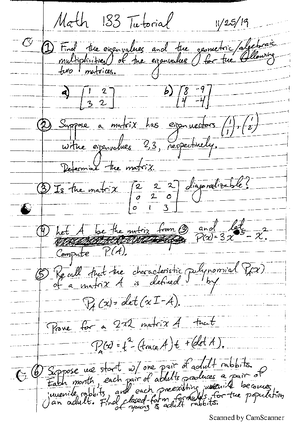 Math 183 Tutorial 11/25/19
① Find the eigenvalues and the geometric/algebraic
multiplicities of the eigenvalues for the following
two matrices.
a) [1 2
3 2] b) [8 -9
4 -4]
② Suppose a matrix has eigenvectors (1
1), (1
2)
w/the eigenvalues 2,3, respectively.
Determine the matrix.
③ Is the matrix [2 2 2
0 2 0
0 1 3] diagonalizable?
④ Let A be the matrix from ③ and let
P(x)=3x - x².
Compute P(A).
⑤ Recall that the characteristic polynomial P_A(x)
of a matrix A is defined by
P_A(x) = det(xI-A).
Prove for a 2x2 matrix A that
P_A(x) = t² - (trace A)t + (det A).
⑥ Suppose we start w/ one pair of adult rabbits.
Each month, each pair of adults produces a pair of
juvenile rabbits, and each preexisting juvenile becomes
an adult. Find closed-form formulas for the population
of young & adult rabbits.
Scanned by CamScanner